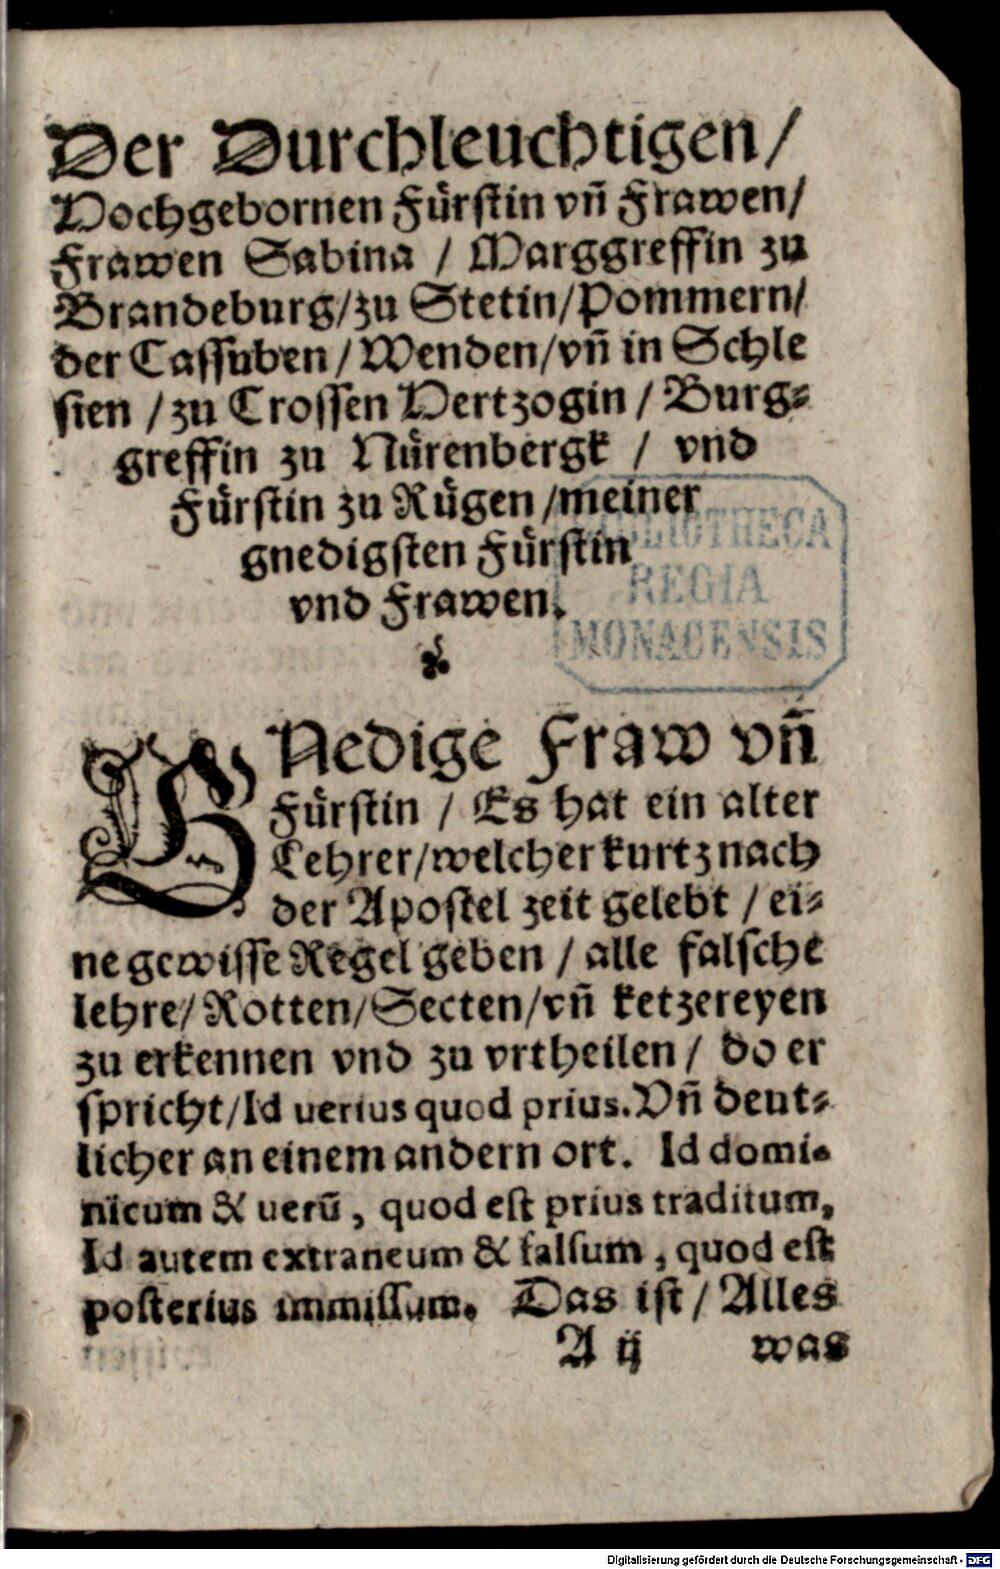 Der Durchleuchtigen/
Hochgebornen Fürstin vñ Frawen/
Frawen Sabina / Marggreffin zu
Brandeburg/zu Stetin/Pommern/
der Cassuben / Wenden/vñ in Schle
sien / zu Crossen Hertzogin / Burg-
greffin zu Nürenbergk / vnd
Fürstin zu Rügen /meiner
gnedigsten Fürstin
vnd Frawen.
BIBLIOTHECA
REGIA
MONACENSIS
GNedige Fraw vñ
Fürstin / Es hat ein alter
Lehrer/welcher kurtz nach
der Apostel zeit gelebt / ei-
ne gewisse Regel geben / alle falsche
lehre/ Rotten/Secten/vñ ketzereyen
zu erkennen vnd zu vrtheilen / do er
spricht/Id uerius quod prius. Vñ deut-
licher an einem andern ort. Id domi-
nicum & uerũ, quod est prius traditum,
Id autem extraneum & falsum, quod est
posterius immissum. Das ist / Alles
A ij was
Digitalisierung gefördert durch die Deutsche Forschungsgemeinschaft - DFG